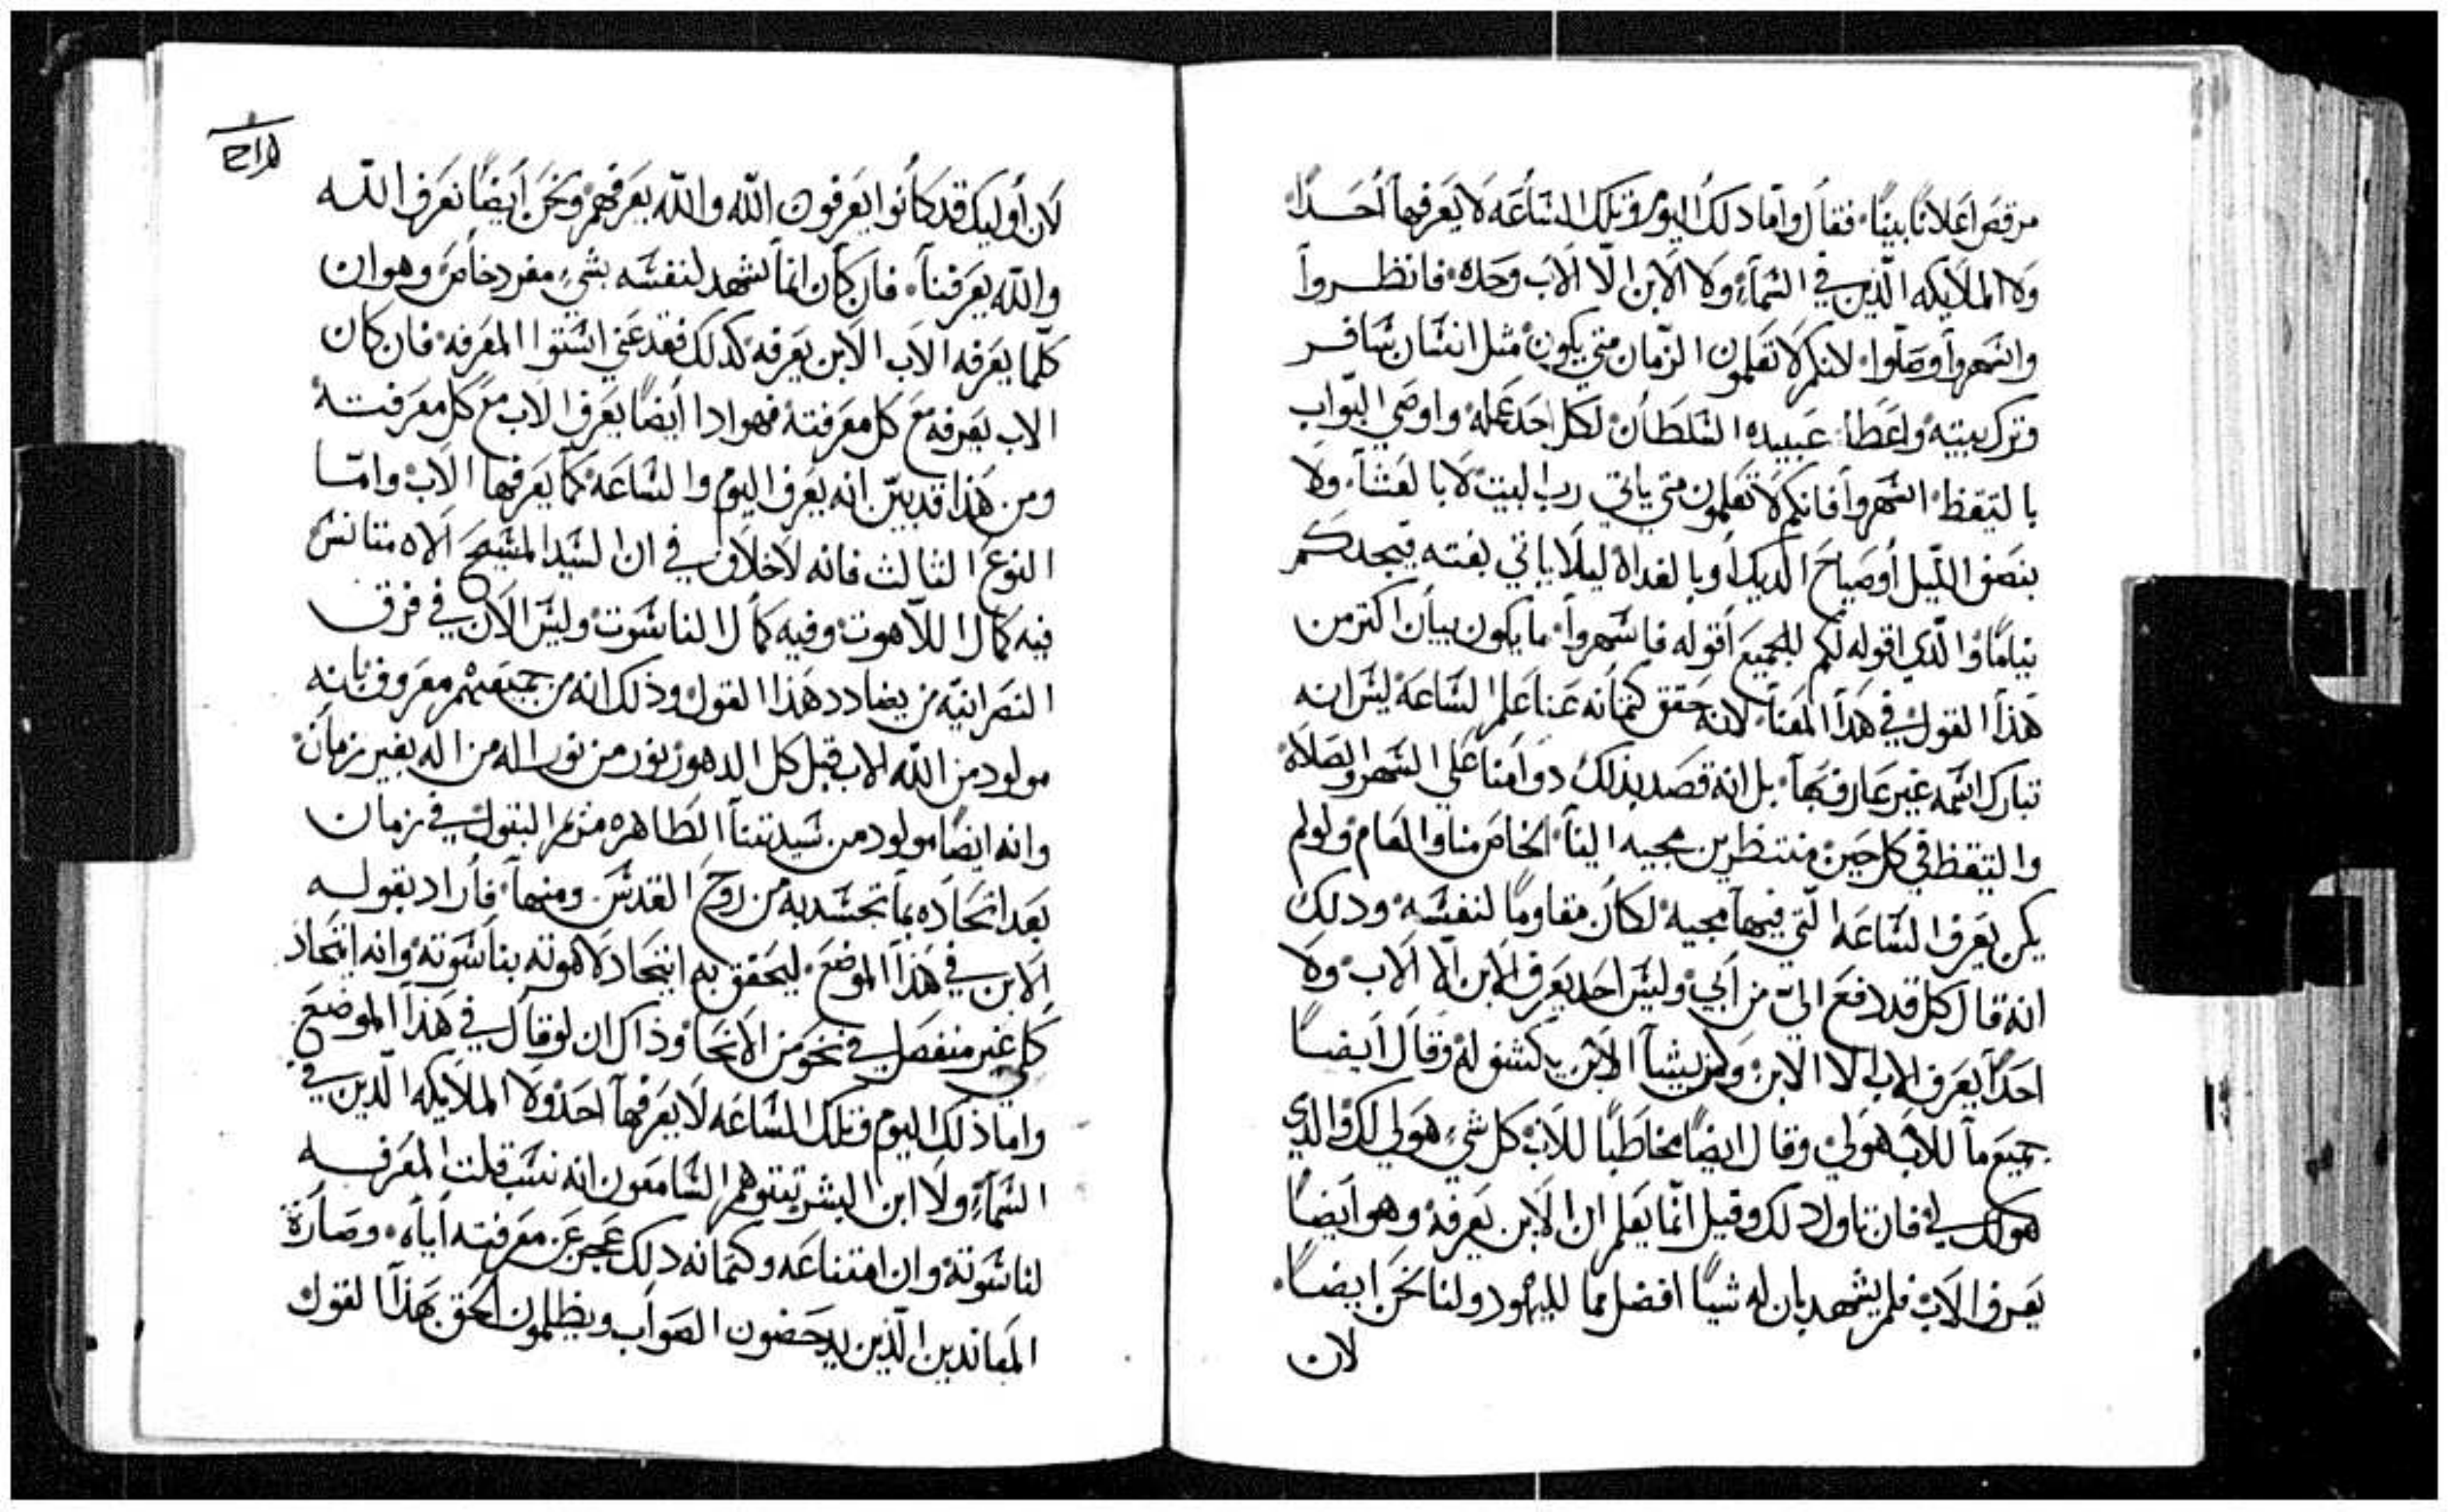 مرقص اعلانًا بينًا. فقال واما دلك اليوم وتلك الساعه لا يعرفها احدًا.
ولا الملايكه الذين في السماء ولا الابن الا الاب وحده. فانظروا
واسهروا وصلوا. لانكم لا تعلمون الزمان متي يكون. مثل انسان سافر
وترك بيته واعطا عبيده السلطان لكل احد عمله واوصي البواب
بالتيقظ. اسهروا فانكم لا تعلمون متي ياتي رب البيت لا بالعشا. ولا
بنصف الليل او صياح الديك او بالغداة ليلا ياتي بغته فيجدكم
نيامًا. والدي اقوله لكم للجميع اقوله فاسهروا. ما يكون بيان اكتر من
هذا القول في هدا المعنا. لانه حقق كتمانه عنا علم الساعة ليس انه
تبارك اسمه غير عارف بها. بل انه قصد بذلك دوامنا علي السهر والصلاة
والتيقظ في كل حين منتظرين مجيه الينا. الخاص منا والعام ولو لم
يكن يعرف الساعه التي فيها مجيه لكان مقاومًا لنفسه ودلك
انه قال كل قد دفع الي من ابي وليس احد يعرف الابن الا الاب. ولا
احدًا يعرف الاب الا الابن ولمن يشآ الابن يكشف له وقال ايضًا
جميع ما للاب هو لي وقال ايضًا مخاطبًا للاب كل شيء هو لي لك والدي
هو لك لي فان تاول دلك وقيل انما يعلم ان الابن يعرفه وهو ايضًا
يعرف الاب فلم يشهد بان له شيًا افضل مما لليهود ولنا نحن ايضًا.
لان
لان اوليك قد كانوا يعرفون الله والله يعرفهم ونحن ايضًا نعرف الله
والله يعرفنا. فان كان انما شهد لنفسه بشيء مفرد خاص وهو ان
كلما يعرفه الاب الابن يعرفه كدلك فقد عني استوا المعرفه. فان كان
الاب يعرفه مع كل معرفته فهو ادا ايضًا يعرف الاب مع كل معرفته
ومن هذا قد بيّن انه يعرف اليوم والساعة كما يعرفها الاب واما
النوع الثالث فانه لا خلاف في ان السيد المسيح الاه متانس
فيه كمال اللاهوت وفيه كمال الناسوت وليس الان في فرق
النصرانيه من يضادد هذا القول وذلك انه من جميعهم معروف بانه
مولود من الله الاب قبل كل الدهور نور من نور اله من اله بغير زمان
وانه ايضًا مولود من سيدتنا الطاهره مرتمريم البتول في زمان
بعد اتحاده بما تجسد به من روح القدس ومنها. فاراد بقوله
الابن في هذا الموضع. ليحقق به اتحاد لاهوته بناسوته وانه اتحاد
كلي غير منفصل في نحو من الانحا وذاك ان لو قال في هذا الموضع
واما ذلك اليوم وتلك الساعه لا يعرفها احد ولا الملايكه الذين في
السماء ولا ابن البشر يتوهم السامعون انه نسب قلت المعرفه
لناسوته وان امتناعه وكتمانه دلك عجز عن معرفته اياه. وصارة
المعاندين الذين يدحضون الصواب ويظلمون الحق بهذا القول